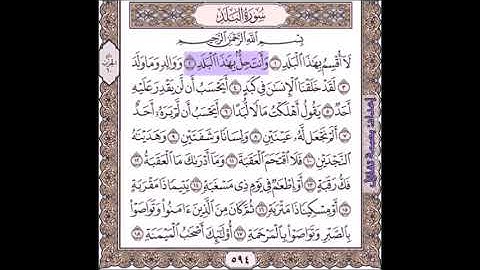 سُورَةُ البَلَدِ
بِسْمِ ٱللَّهِ ٱلرَّحْمَٰنِ ٱلرَّحِيمِ
لَآ أُقْسِمُ بِهَٰذَا ٱلْبَلَدِ ١ وَأَنتَ حِلٌّۢ بِهَٰذَا ٱلْبَلَدِ ٢ وَوَالِدٍ وَمَا وَلَدَ
٣ لَقَدْ خَلَقْنَا ٱلْإِنسَٰنَ فِى كَبَدٍ ٤ أَيَحْسَبُ أَن لَّن يَقْدِرَ عَلَيْهِ
أَحَدٌ ٥ يَقُولُ أَهْلَكْتُ مَالًا لُّبَدًا ٦ أَيَحْسَبُ أَن لَّمْ يَرَهُۥٓ أَحَدٌ
٧ أَلَمْ نَجْعَل لَّهُۥ عَيْنَيْنِ ٨ وَلِسَانًا وَشَفَتَيْنِ ٩ وَهَدَيْنَٰهُ
ٱلنَّجْدَيْنِ ١٠ فَلَا ٱقْتَحَمَ ٱلْعَقَبَةَ ١١ وَمَآ أَدْرَىٰكَ مَا ٱلْعَقَبَةُ ١٢
فَكُّ رَقَبَةٍ ١٣ أَوْ إِطْعَٰمٌ فِى يَوْمٍ ذِى مَسْغَبَةٍ ١٤ يَتِيمًا ذَا مَقْرَبَةٍ
١٥ أَوْ مِسْكِينًا ذَا مَتْرَبَةٍ ١٦ ثُمَّ كَانَ مِنَ ٱلَّذِينَ ءَامَنُوا۟ وَتَوَاصَوْا۟
بِٱلصَّبْرِ وَتَوَاصَوْا۟ بِٱلْمَرْحَمَةِ ١٧ أُو۟لَٰٓئِكَ أَصْحَٰبُ ٱلْمَيْمَنَةِ ١٨
٥٩٤